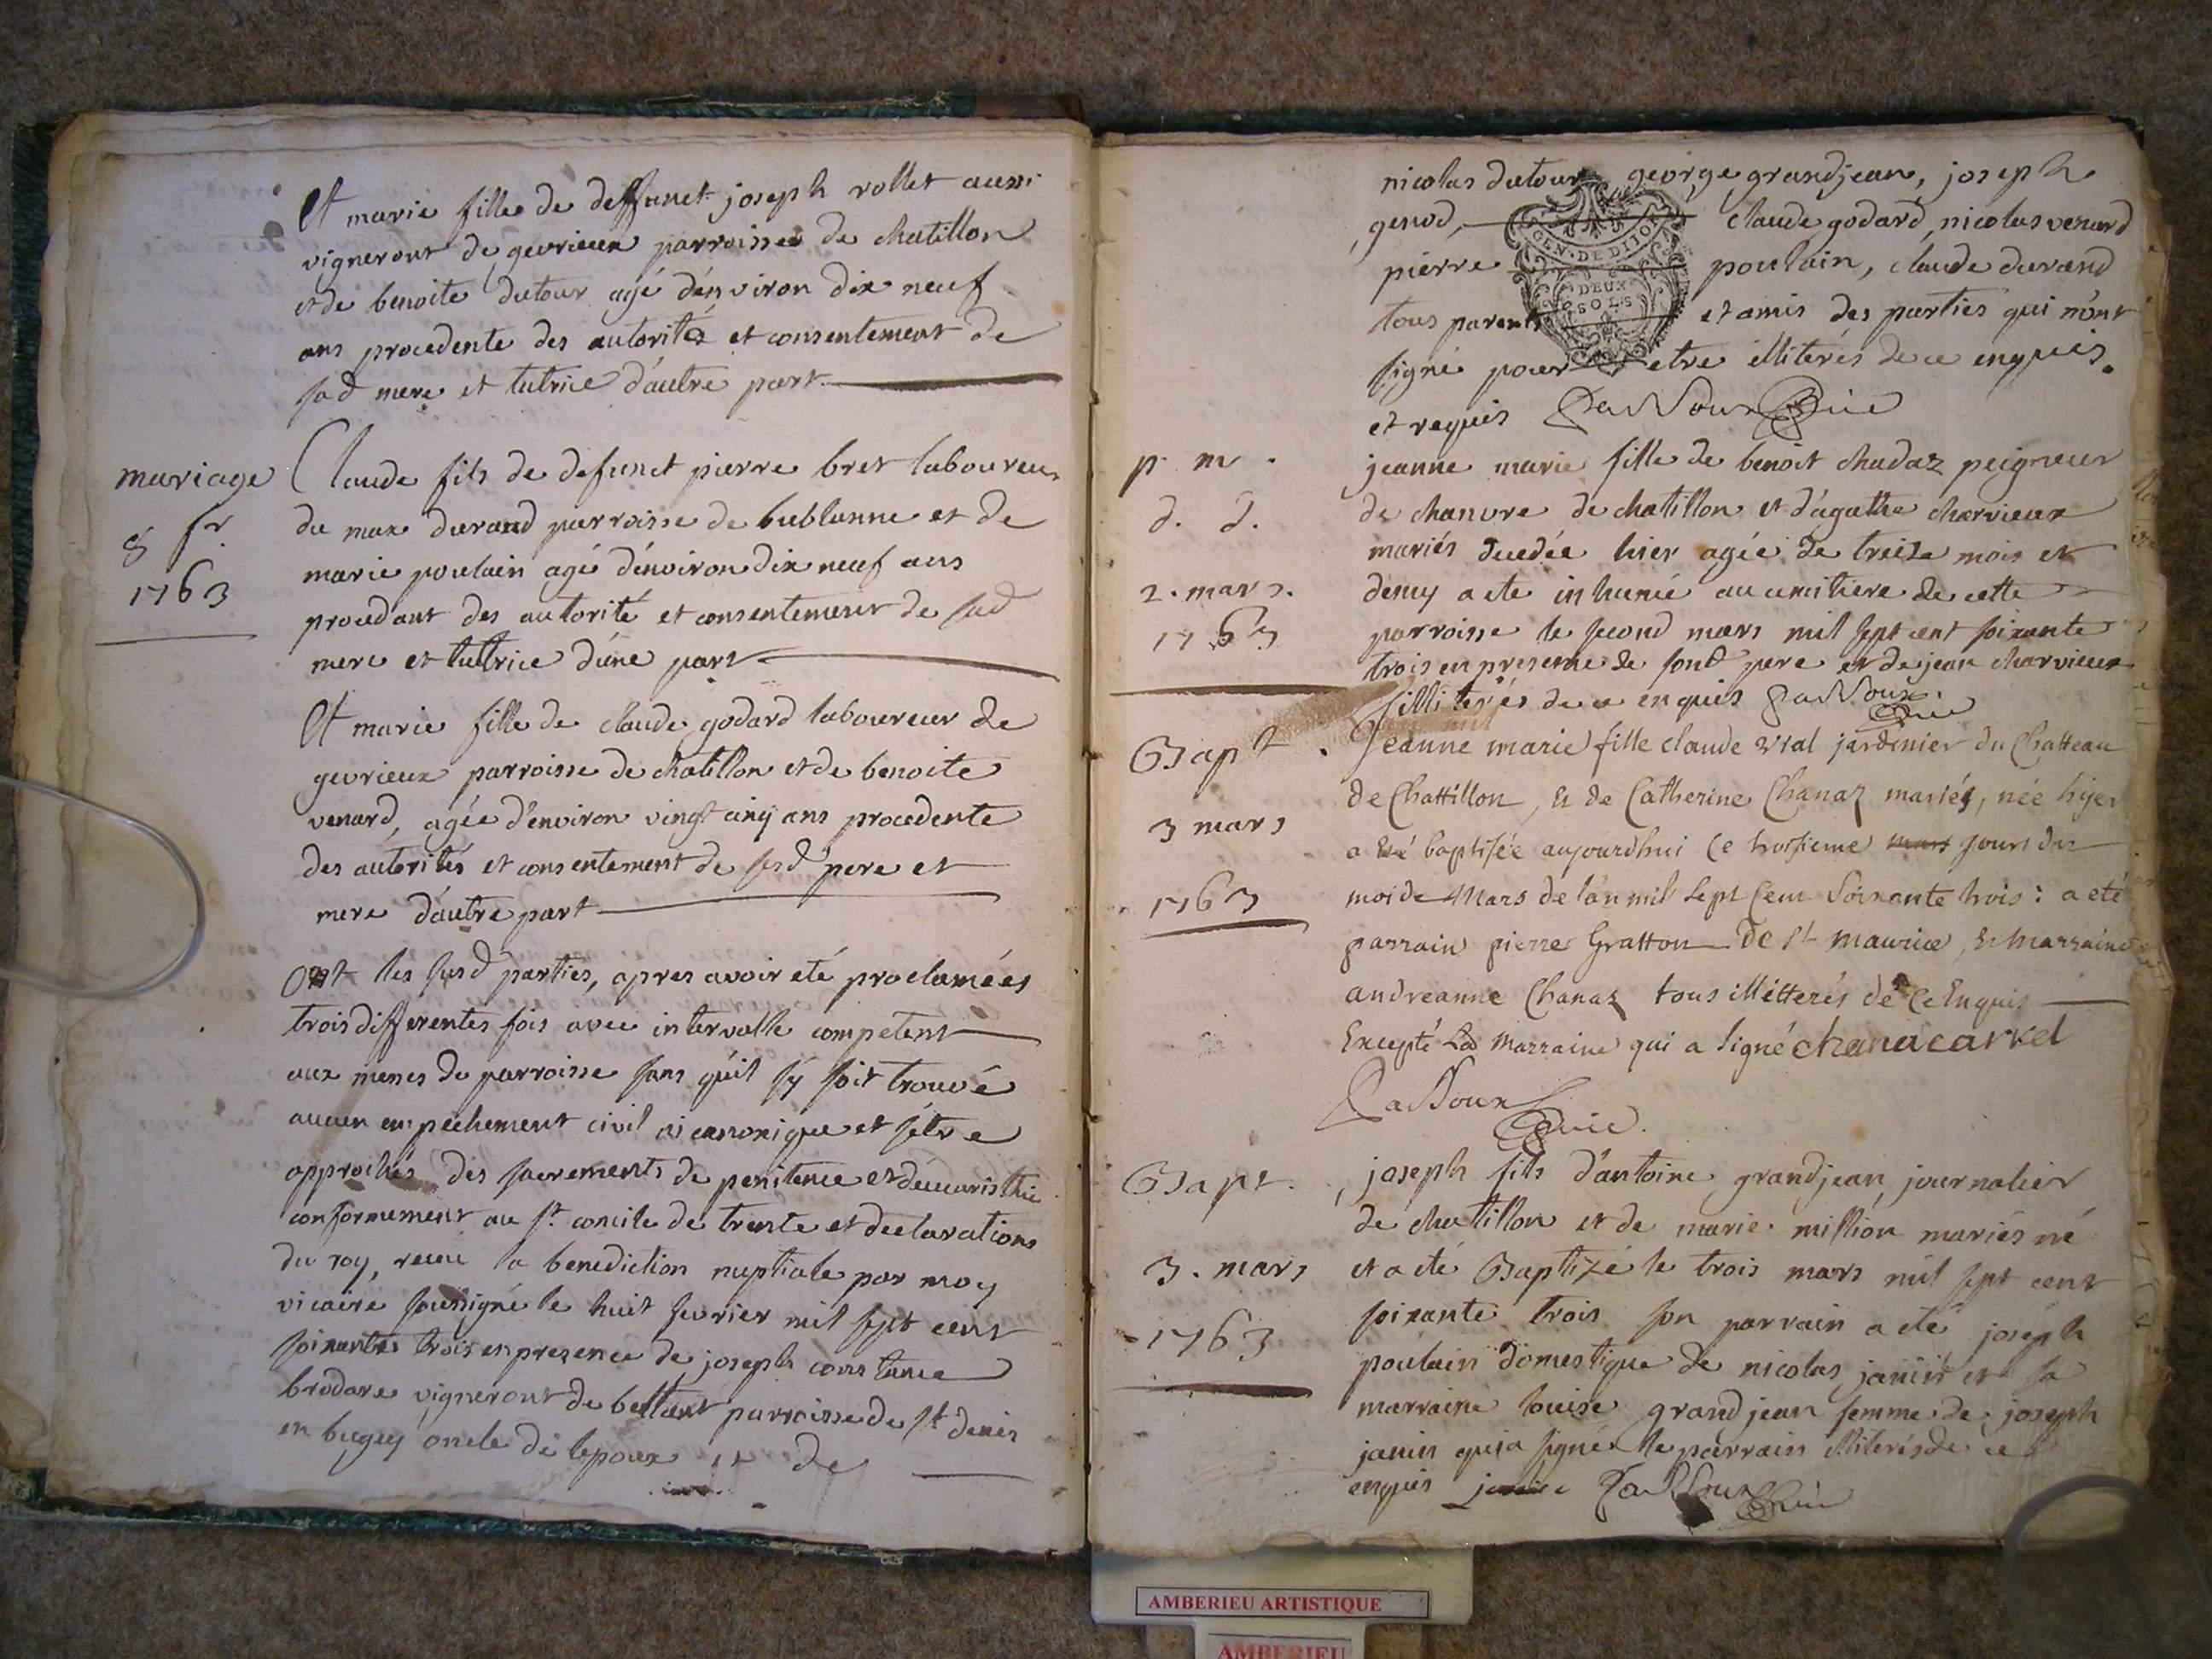 Et marie fille de deffunct joseph rollet aussi
vigneront de gevrieux parroisse de chatillon
et de benoite dutour agé d'environ dix neuf
ans procedente des autorités et consentement de
sad mere et tutrice d'autre part
mariage
8 fr
1763
Claude fils de defunct pierre bret laboureur
du max durand parroisse de bublanne et de
marie poulain agé d'environ dix neuf ans
procedant des autorité et consentement de sad
mere et tuttrice d'une part
Et marie fille de claude godard laboureur de
gevrieux parroisse de chatillon et de benoite
venard, agée d'environ vingt cinq ans procedente
des autorités et consentement de sesd pere et
mere d'autre part
Ont les susd parties, apres avoir eté proclamées
trois differentes fois avec intervalle competent
aux messes de parroisse sans qu'il sy soit trouvé
aucun empechement civil ni canonique et s'etre
approchés des sacrements de penitence et d'eucaristhie
conformement au st concile de trente et declarations
du roy, recue la benediction nuptiale par moy
vicaire soussigné le huit fevrier mil sept cent
soixante trois en presence de joseph constance
brodare vigneront de bettant parroisse de st denis
en bugey oncle de lepoux et de
nicolas dutour george grandjean, joseph
genod, claude godard, nicolas venard
GEN. DE DIJON
pierre poulain, claude durand
DEUX
SOLS
tous parents et amis des parties qui n'ont
signé pour etre illiterés de ce enquis
et requis Passoux vic
p. m.
d. d.
2. mars.
1763
jeanne marie fille de benoit chadaz peigneur
de chanvre de chatillon et d'agathe charvieux
mariés decedée hier agée de treize mois et
demy a ete inhumé au cimitiere de cette
parroisse le second mars mil sept cent soixante
trois en presence de sond pere et de jean charvieux
illiterés de ce enquis Passoux
vic
Bapt.
3 mars
1763
Jeanne marie fille claude vial jardinier du Chatteau
de Chattillon, & de Catherine Chanaz mariés, née hyer
a eté baptisée aujourdhui ce troisieme mars jours du
moi de Mars de l'an mil sept Cent Soixante trois : a eté
parrain pierre Gratton de St maurice, & Marraine
andreanne Chanaz tous illétterés de ce Enquis
Excepté Lad Marraine qui a signé chanacarrel
Passoux
vic.
Bapt.
3. mars
1763
joseph fils d'antoine grandjean, journalier
de chatillon et de marie mission mariés né
et a eté Baptizé le trois mars mil sept cent
soixante trois son parrain a eté joseph
poulain domestique de nicolas janin et sa
marraine louise grandjean femme de joseph
janin qui a signé le parrain illiterés de ce
enquis Passoux vic
AMBERIEU ARTISTIQUE
AMBERIEU